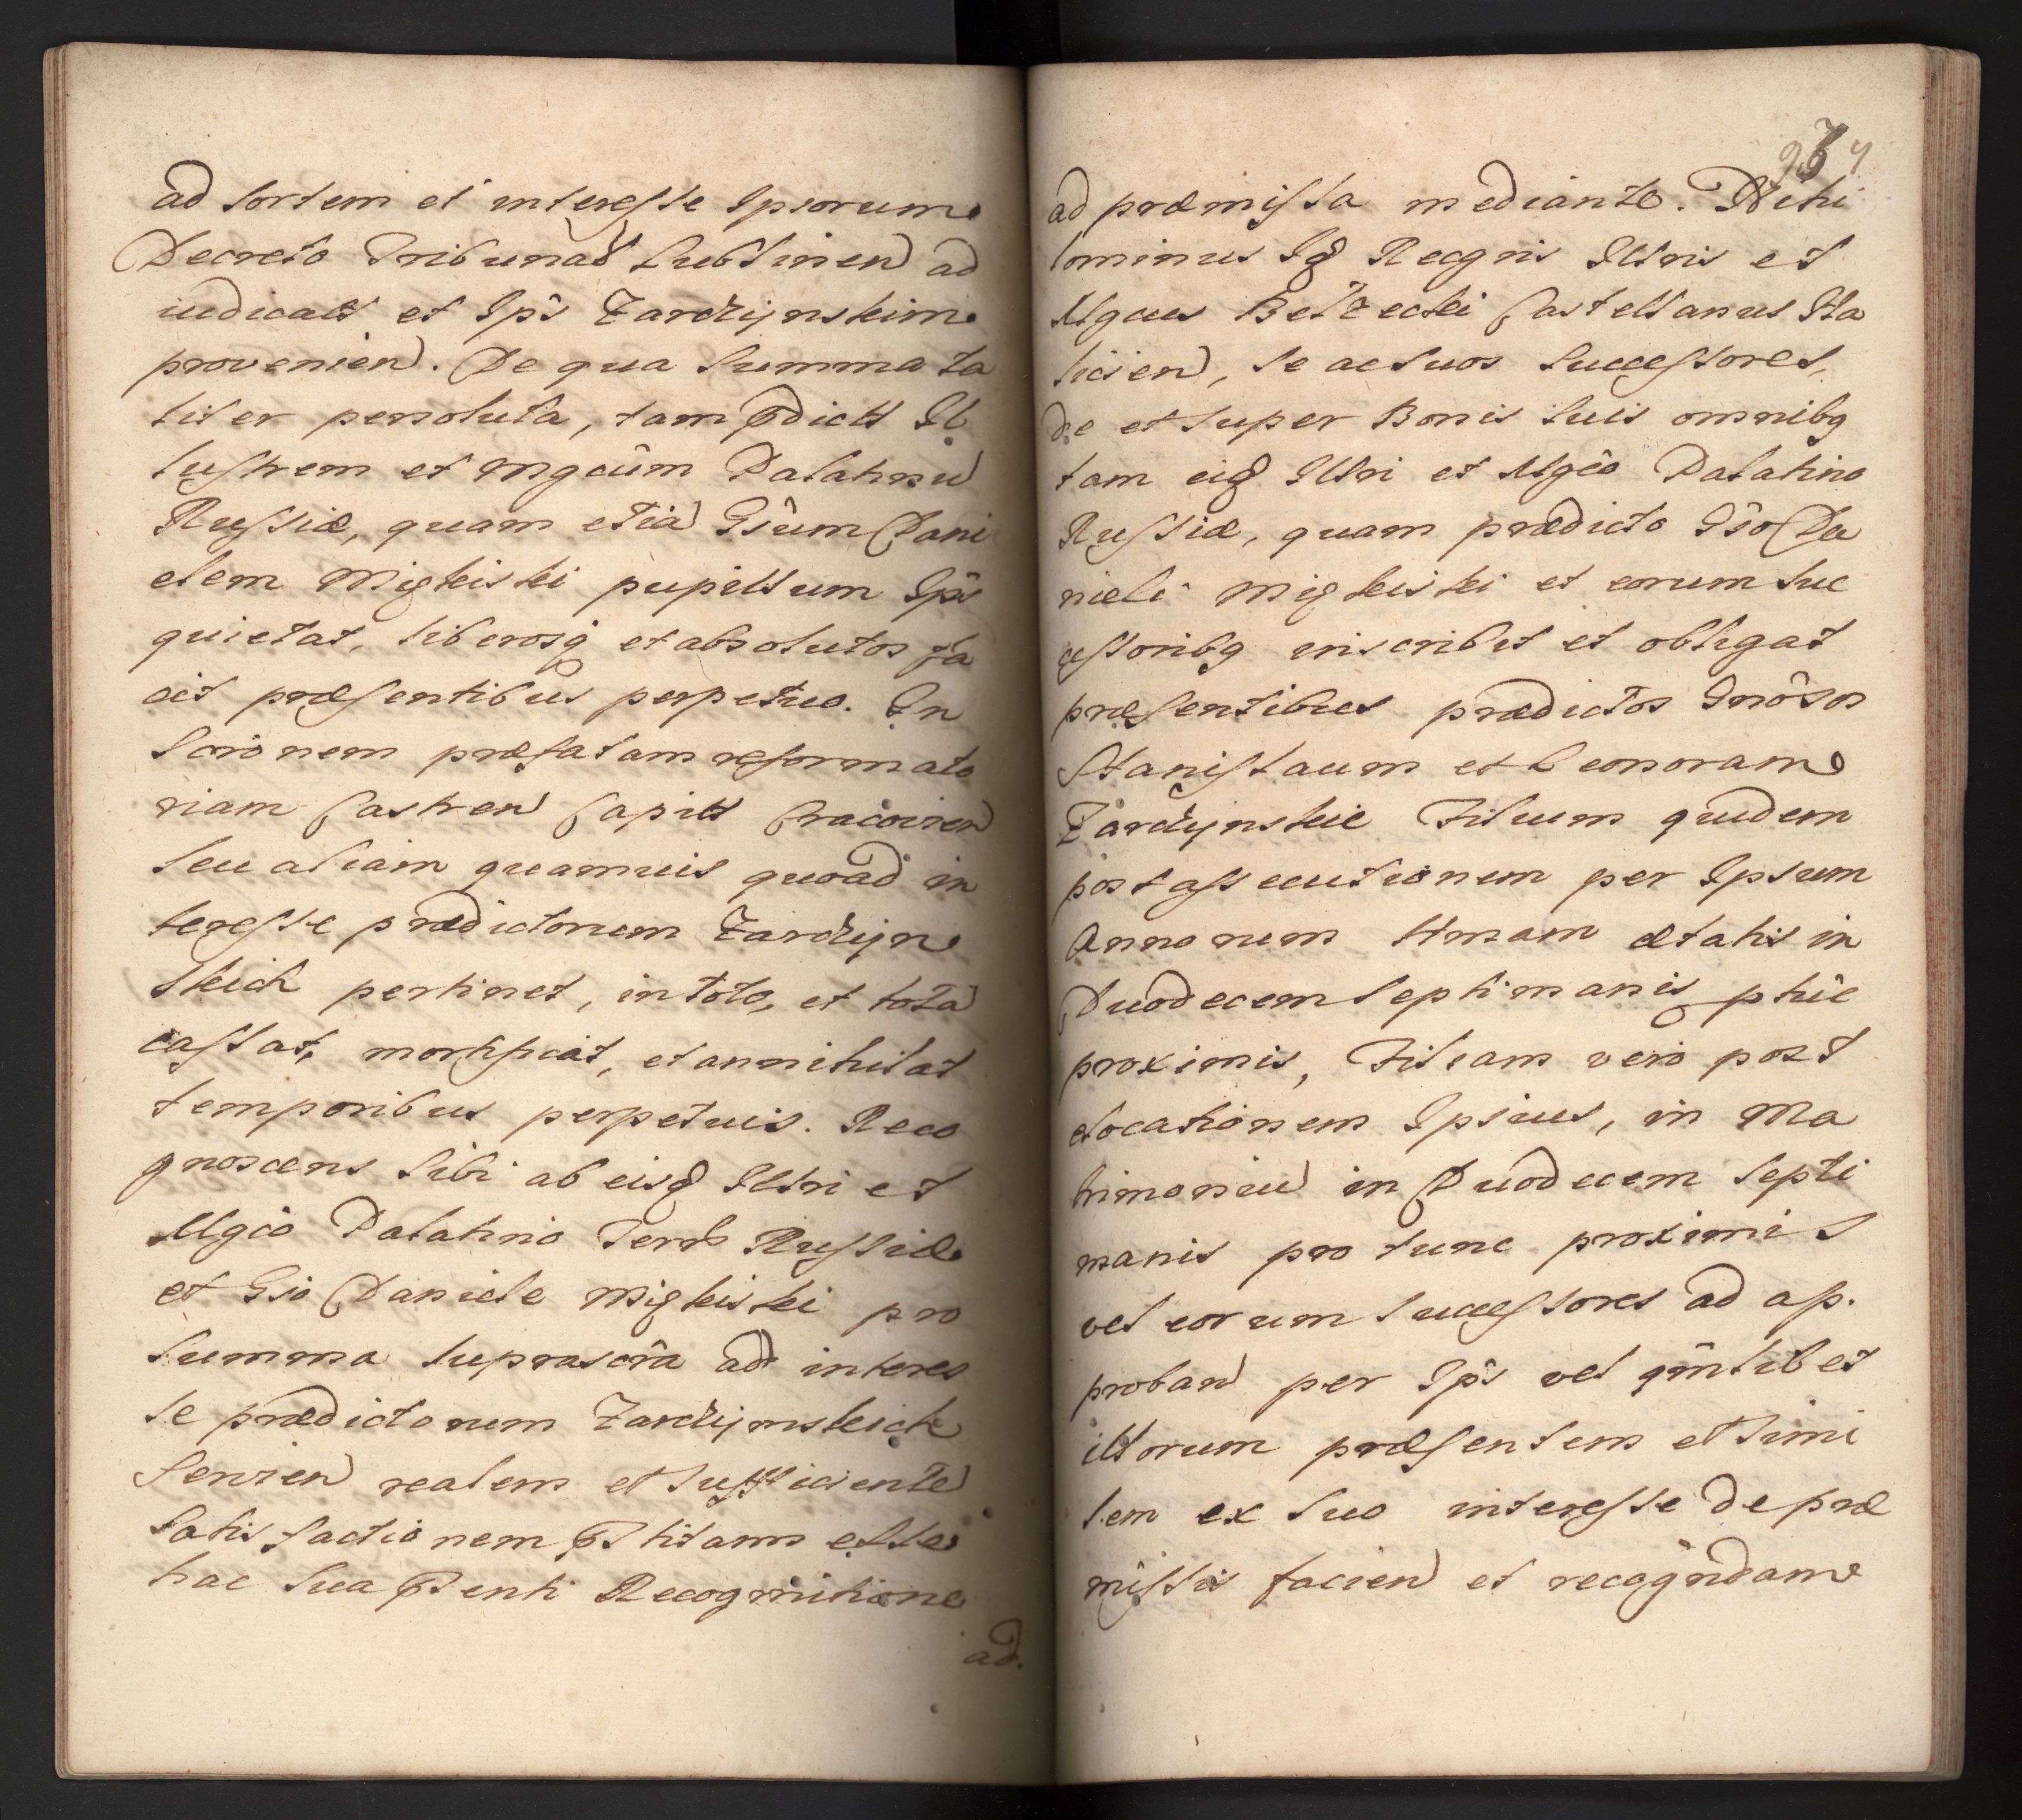 ad sortem et interesse Ipsorum
Decreto Tribunał Lublinen ad
iudicatt et Ips Zardzÿnskim
provenien. De qua summa ta
liter persoluta, tam pdictt Il
lustrem et Mgcûm Palatinu
Russiæ, quam etia Gsûm Dani
elem Migleiski pupillum Ips
quietat, liberosq et absolutos fa
cit præsentibus perpetuo. In
scrionem præfatam reformato
riam Castren Capitt Cracovien
seu aliam quamvis quoad in
teresse prædictorum Zardzÿn
skich pertinet, in toto, et tota
cassat, mortificat, et annihilat
temporibus perpetuis. Reco
gnoscens sibi ab eisd Illri et
Mgco Palatino Terr Russiæ
et Gso Daniele Migleiski pro
summa suprascra ad interes
se prædictorum Zardzÿnskich
servien realem et sufficiente
satisfactionem pstitam esse
hac sua psenti Recognitione
ad.
ad præmissa mediante. Nihi
lominus Id Recgnis Illris et
Mgcus Bełzecki Castellanus Ha
licien, se ac suos successores,
de et super Bonis suis omnibq
tam eid Illri et Mgco Palatino
Russiæ, quam prædicto Gso Da
nieli Migleiski et eorum suc
cessoribq inscribit et obligat
præsentibus prædictos Gnosos
Stanislaum et Leonoram
Zardzÿnskie Filium quidem
post assecutionem per Ipsum
Annorum ttmam ætatis in
Duodecem septimanis ptue
proximis, Filiam vero post
elocationem Ipsius, in Ma
trimoniu in Duodecem septi
manis pro tunc proximis
vel eorum successores ad ap.
proban per Ips vel qmlibet
illorum præsentem et simi
lem ex suo interesse de præ
missis facien et recogndam